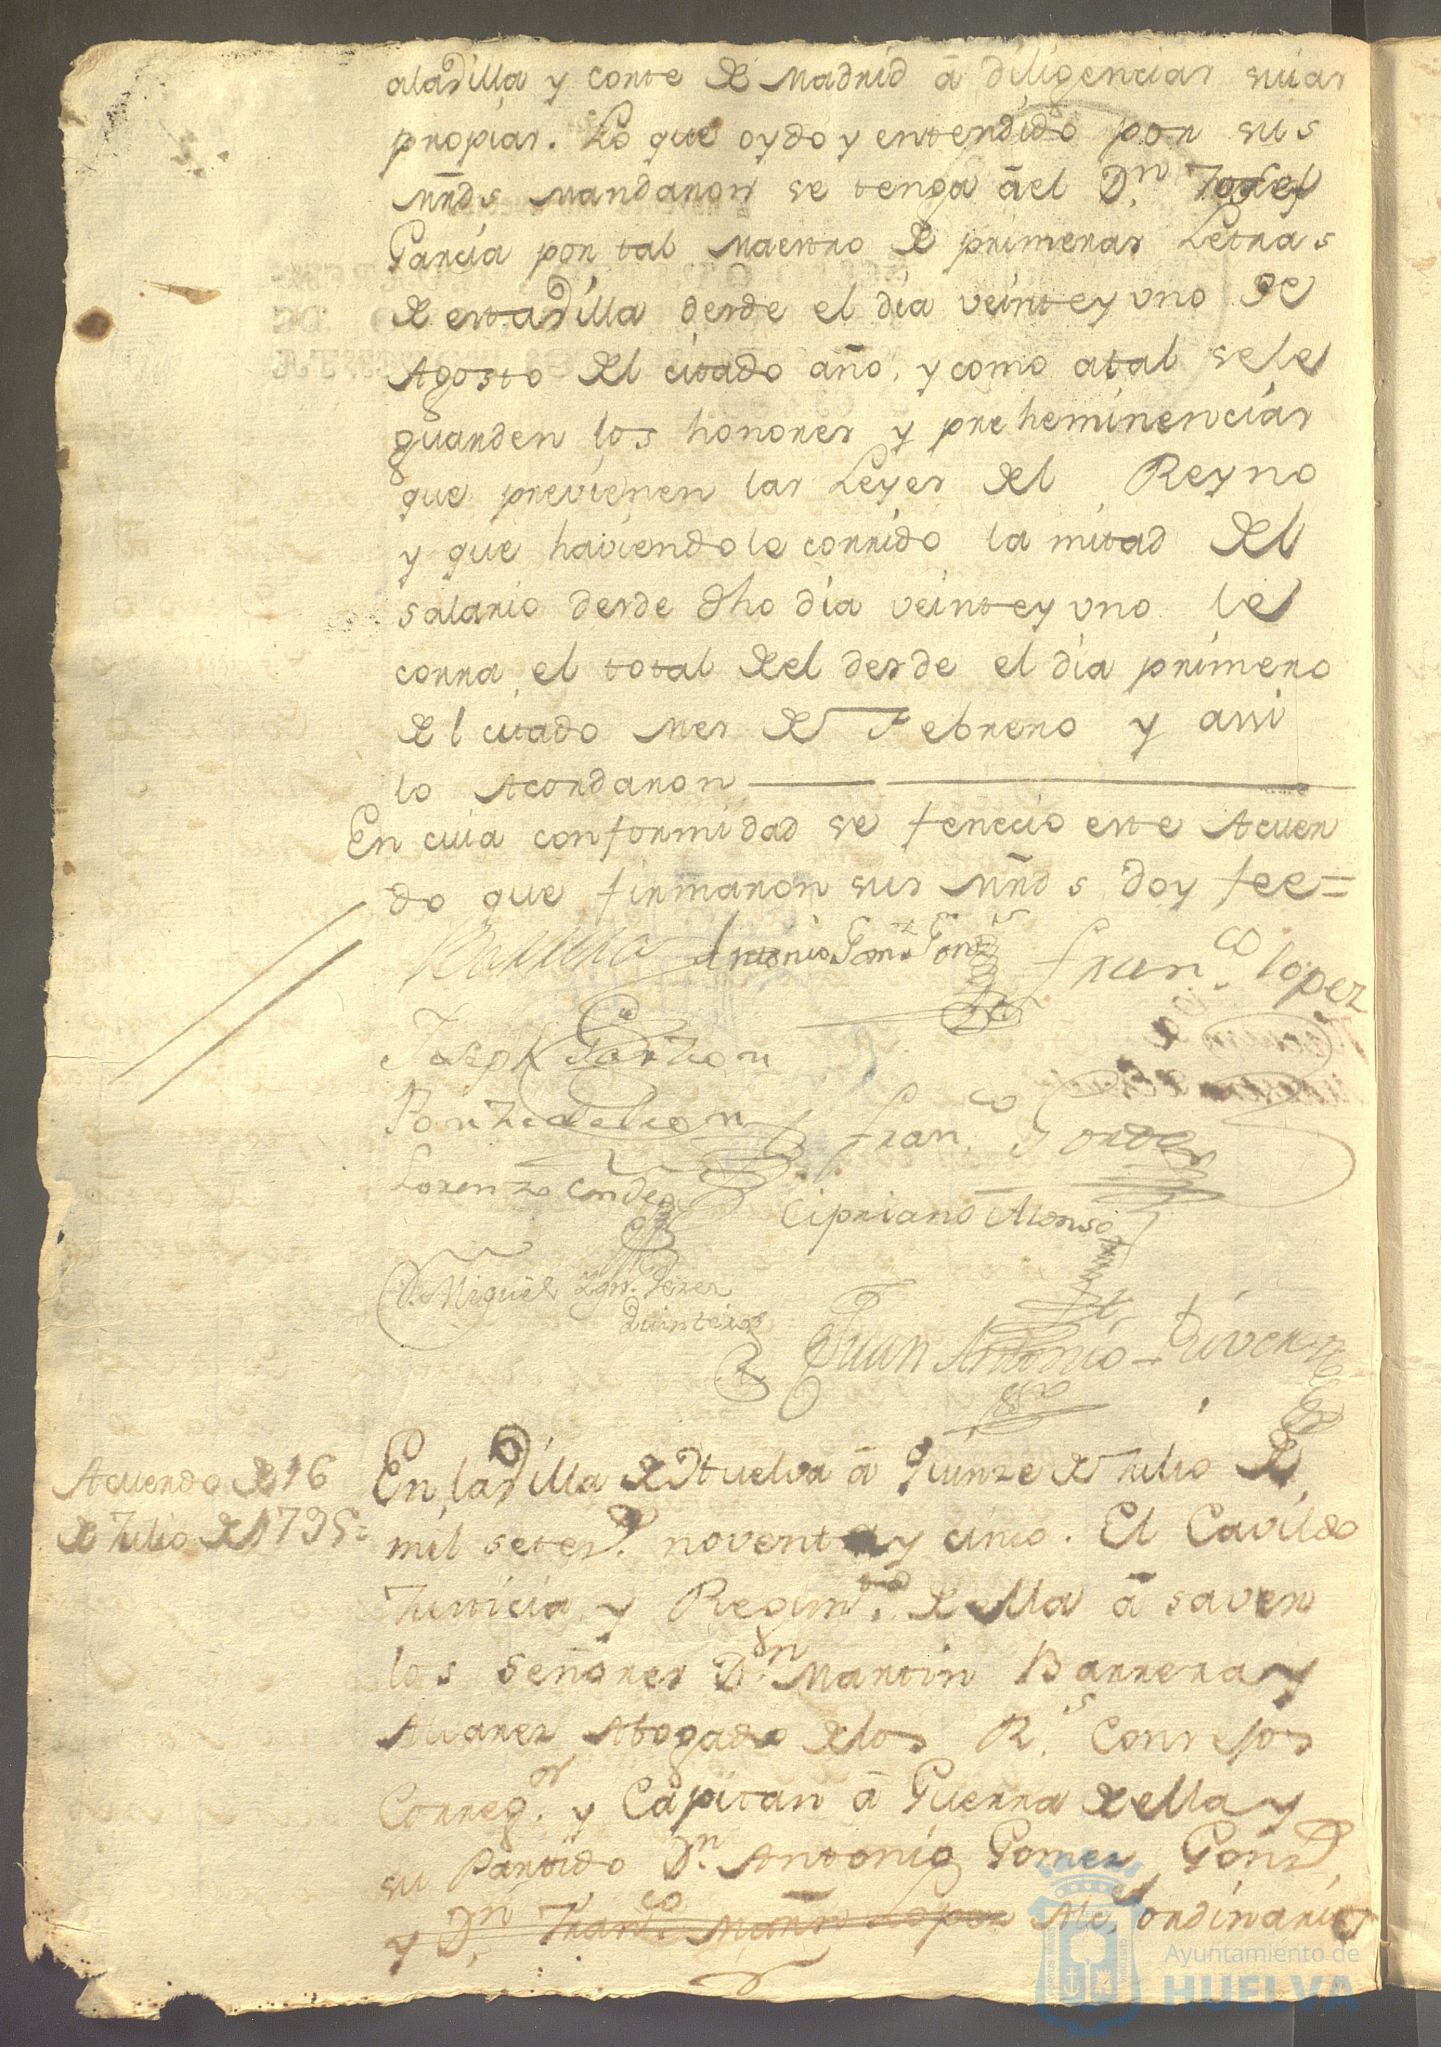 alaVilla y Corte de Madrid â diligencias suias
propias. Lo que oydo y entendido por sus
Mrds mandaron se tenga âel Dn. Josef
Garcia por tal Maestro de primeras Letras
de estaVilla desde el dia veinte y uno de
Agosto del citado año, y como atal sele
guarden los honores y preheminencias
que previenen las Leyes del Reyno
y que haviendole corrido la mitad del
salario desde dho dia veinte y uno le
corra el total del desde el dia primero
del citado mes de Febrero y assi
lo Acordaron
En cuia conformidad se fenecio este Acuer
do que firmaron sus Mrds doy fee=
Barrera Antonio Gomz Gonz Franco. Lopez
Joseph Garzia
Ponze de Leon Franco. Jordan
Lorenzo Conde Cipriano Alonso
D. Miguel Ign. Perez
Quintero
Juan Antonio Rivera
Acuerdo de 16
de Julio de 1795=
En laVilla de Huelva â Quinze de Julio de
mil setes. noventa y cinco. El Cavildo
Justicia y Regimto. de ella â saver
los señores Dn. Martin Barrera y
Alvarez Abogado delos Rs. Consejos
Corregor. y Capitan â Guerra de ella y
su Partido Dn. Antonio Gomez Gonz
y Dn. Franco. Marn Lopez Alces. ordinarios
Ayuntamiento de
HUELVA